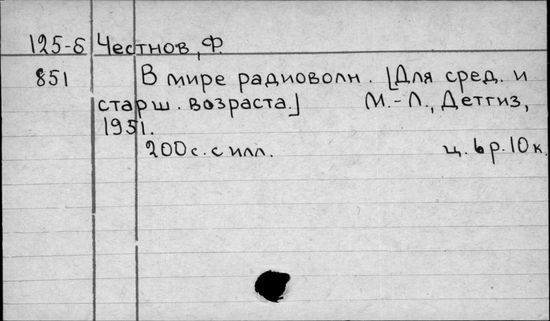 125-б Честнов, Ф.
851 В мире радиоволн. [Для сред. и
старш. возраста.] М.-Л., Детгиз,
1951.
200 с. с илл. ц. 6 р. 10 к.